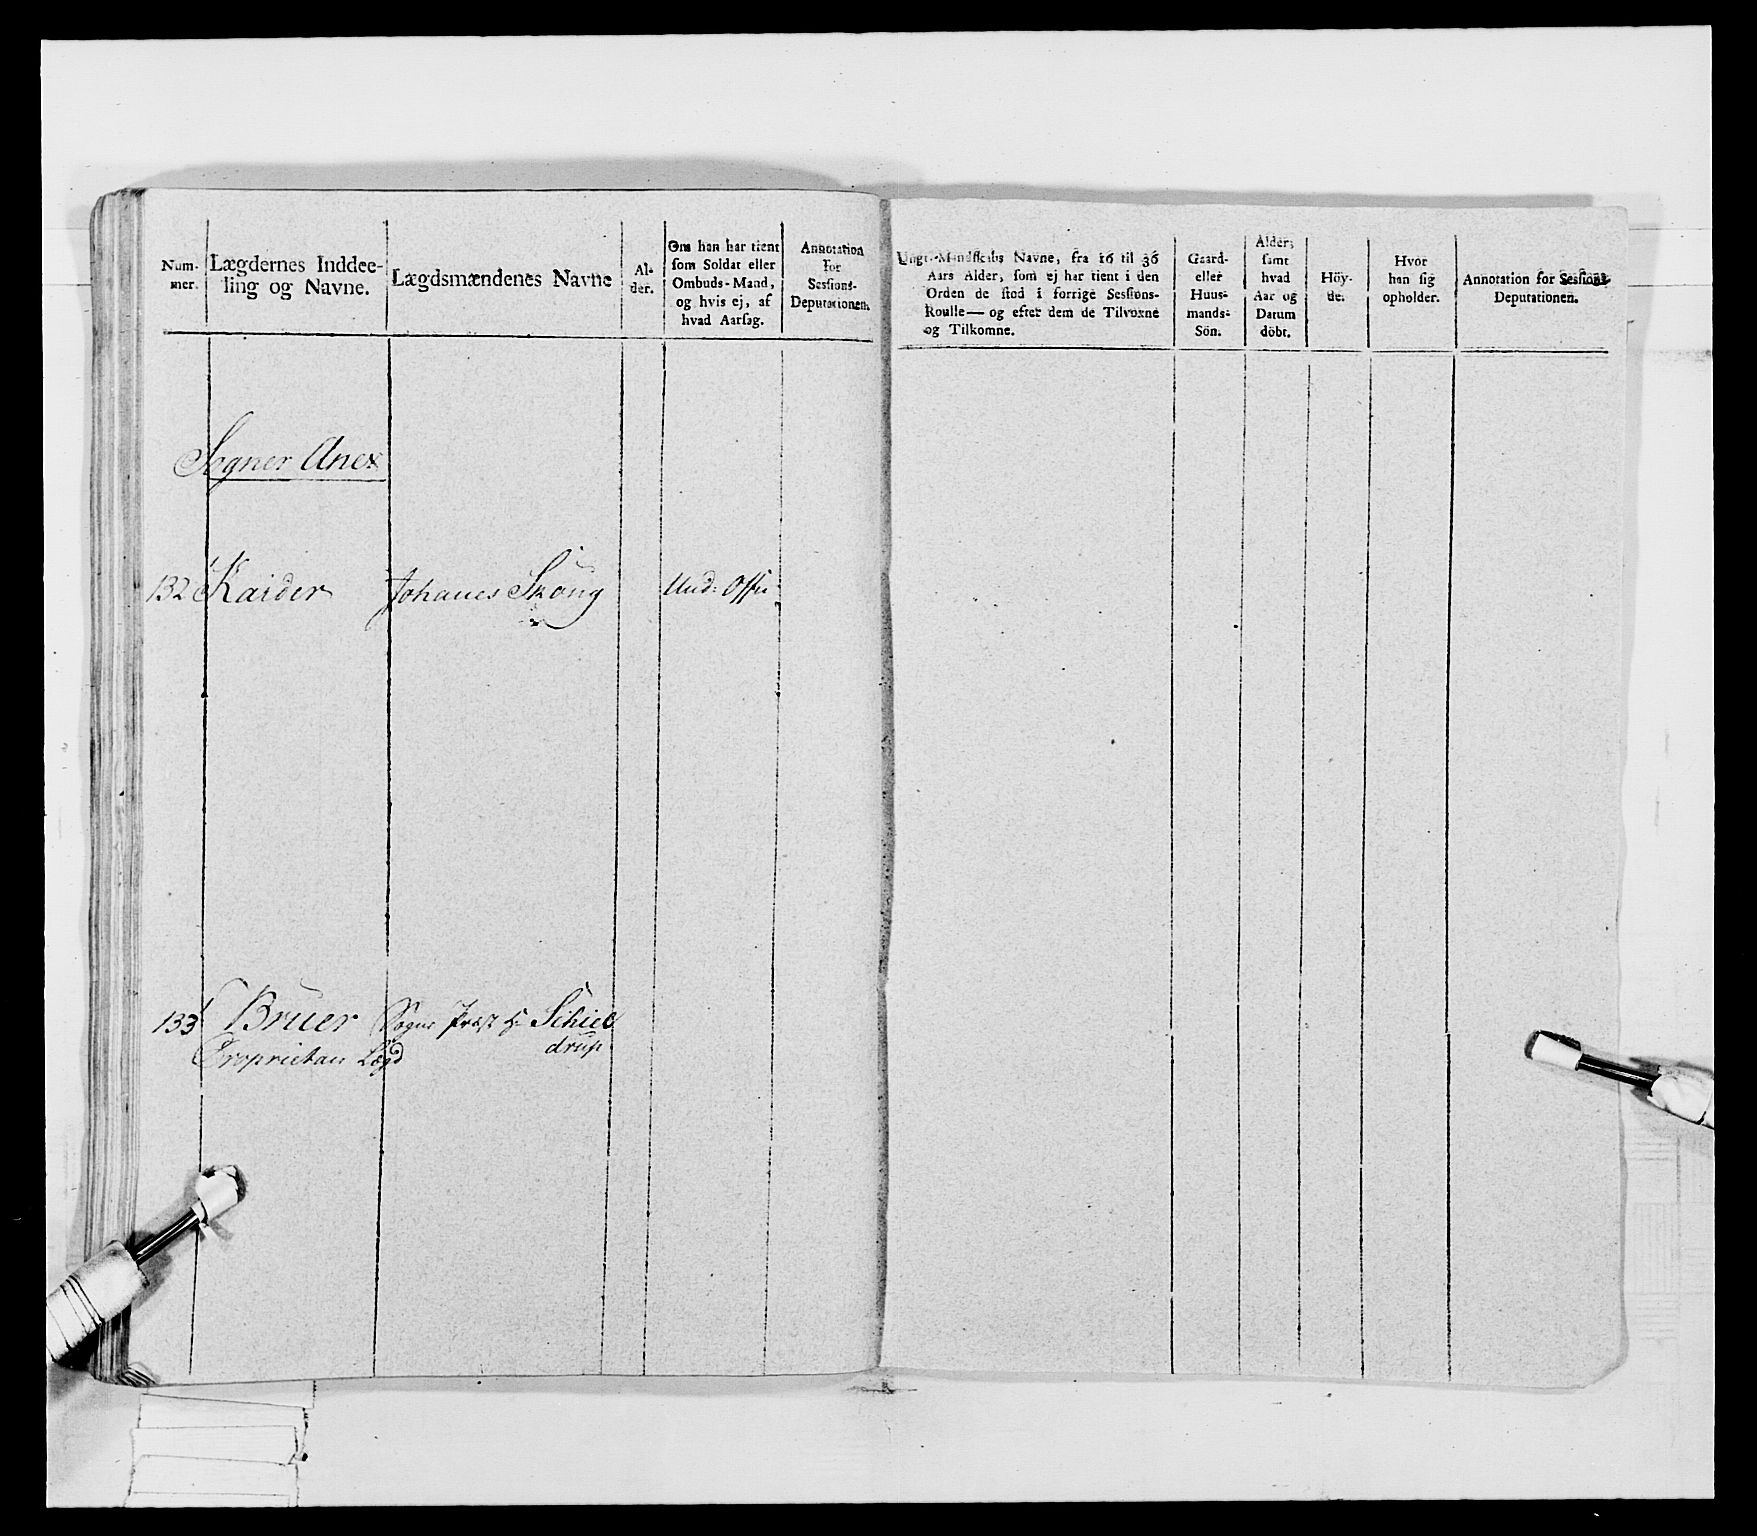 Num-
mer.
Lægdernes Inddee-
ling og Navne.
Lægdsmændenes Navne
Al-
der.
Om han har tient
som Soldat eller
Ombuds-Mand,
og hvis ej, af
hvad Aarsag.
Annotation
for
Sessions-
Deputationen.
Ungt-Mandskabs Navne, fra 16 til 36
Aars Alder, som ej har tient i den
Orden de stod i forrige Sessions-
Roulle — og efter dem de Tilvoxne
og Tilkomne.
Gaard-
eller
Huus-
mands-
Sön.
Alder,
samt
hvad
Aar og
Datum
döbt.
Höy-
de.
Hvor
han sig
opholder.
Annotation for Sessions-
Deputationen.
Sogner Anex
132 Kaider Johanes Skoug Und: Offi:
133 Bruer Sogne Præst Hr Schiel
Proprietair Lægd drup